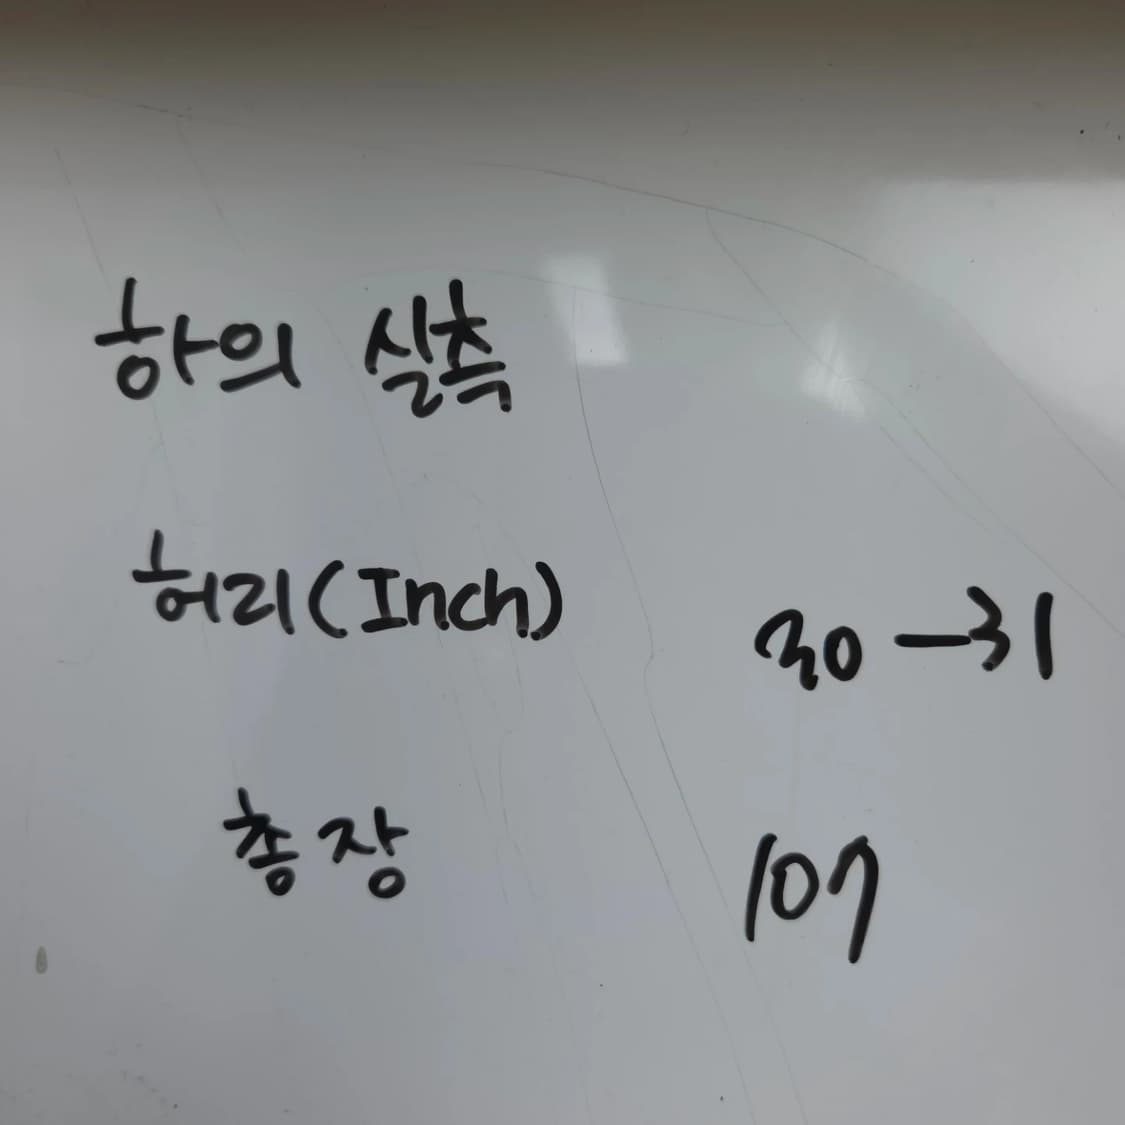 하의 실측
허리(Inch) 30-31
총장 107